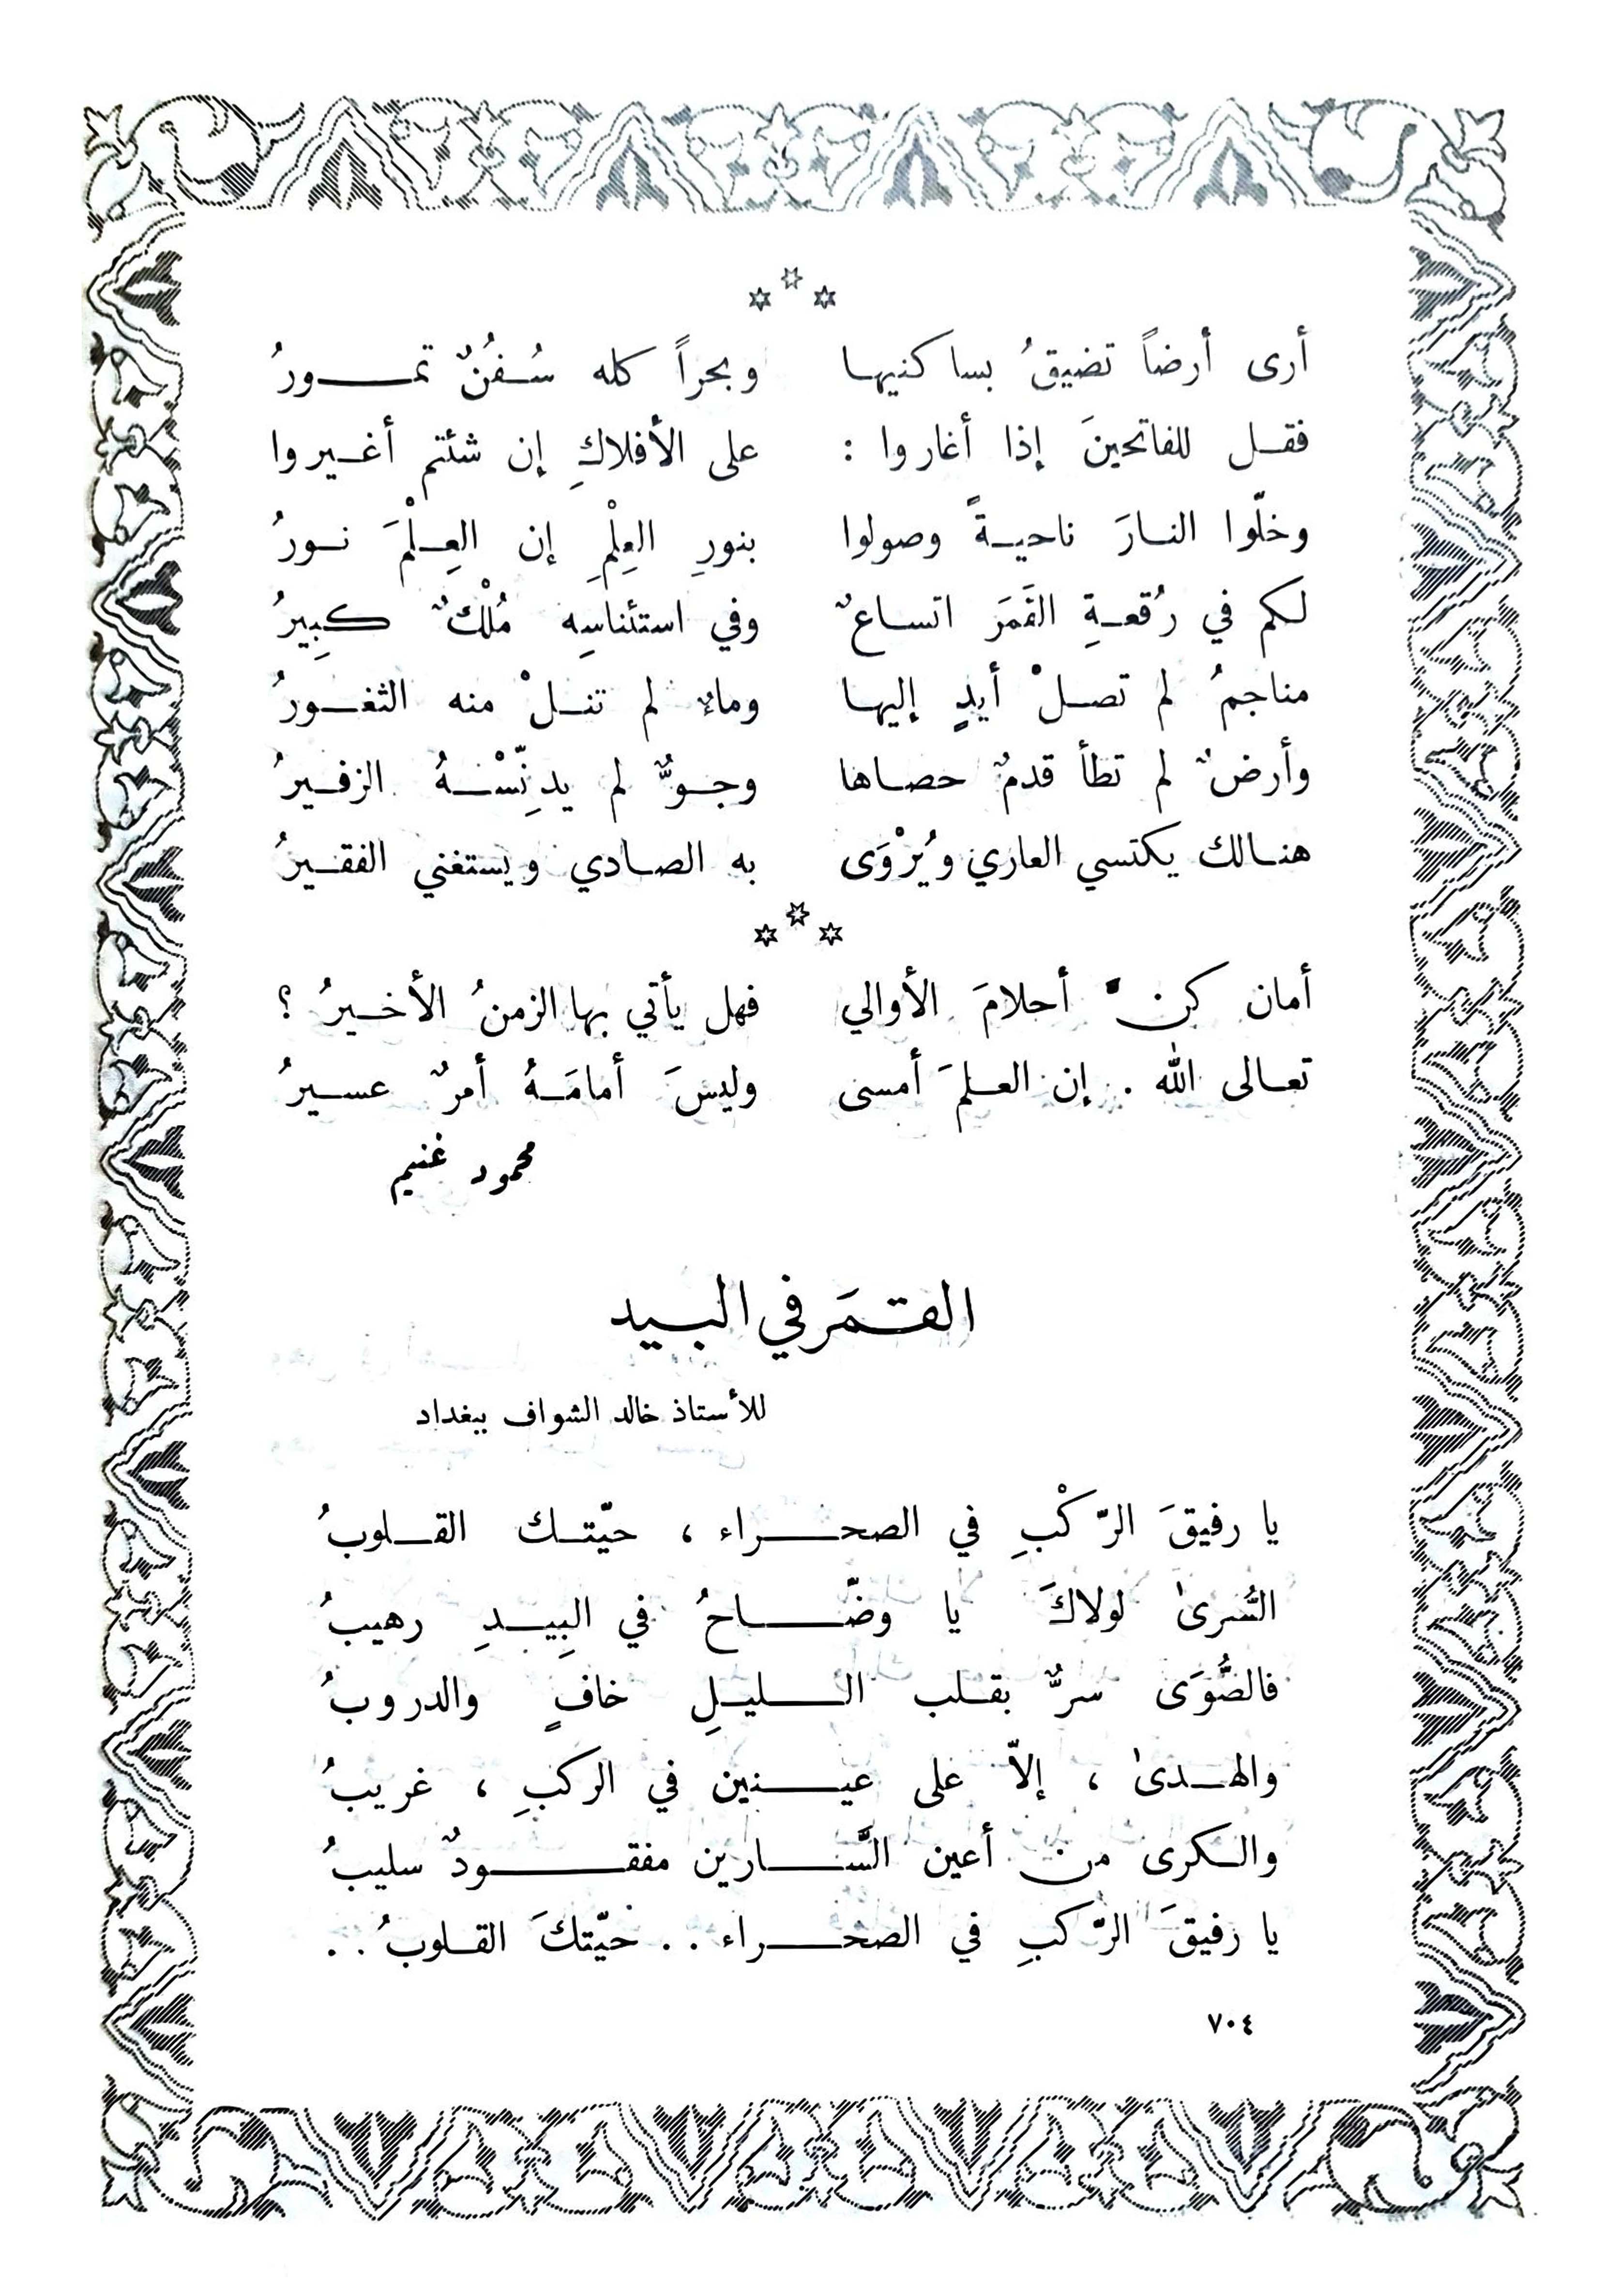 أرى أرضاً تضيقُ بساكنيها وبحراً كله سُفُنٌ تمورُ
فقل للفاتحينَ إذا أغاروا : على الأفلاكِ إن شئتم أغيروا
وخلّوا النارَ ناحيةً وصولوا بنورِ العِلْمِ إن العِلْمَ نورُ
لكم في رُقعةِ القَمَرَ اتساعٌ وفي استئناسِه مُلْكٌ كبِيرُ
مناجمُ لم تصلْ أيدٍ إليها وماء لم تنلْ منه الثغورُ
وأرضٌ لم تطأ قدمٌ حصاها وجوٌّ لم يدنِّسْهُ الزفيرُ
هنالك يكتسي العاري ويُرْوَى به الصادي ويستغني الفقيرُ
أمان كن أحلامَ الأوالي فهل يأتي بها الزمنُ الأخيرُ ؟
تعالى الله . إن العلمَ أمسى وليسَ أمامَهُ أمرٌ عسيرُ
محمود غنيم
القمَر في البيد
للأستاذ خالد الشواف ببغداد
يا رفيقَ الرّكْبِ في الصحراء ، حيّتك القلوبُ
السُّرىٰ لولاكَ يا وضّاحُ في البِيدِ رهيبُ
فالصُّوَى سرٌّ بقلب الليلِ خافٍ والدروبُ
والهدىٰ ، إلاّ على عينين في الركبِ ، غريبُ
والكرى من أعين السَّارين مفقودٌ سليبُ
يا رفيقَ الرّكبِ في الصحراء . . حيّتكَ القلوبُ . .
٧٠٤